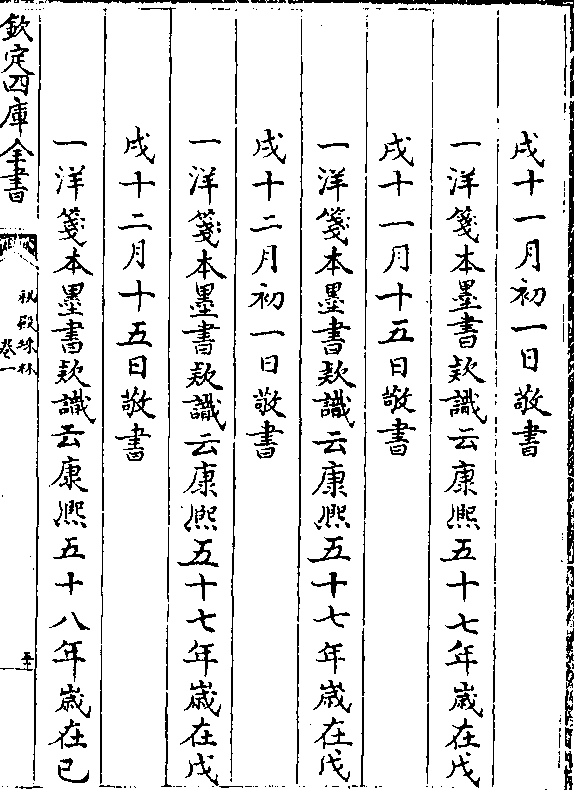 戌十一月初一日敬書
一洋箋本墨書欵識云康熈五十七年嵗在戊
戌十一月十五日敬書
一洋箋本墨書欵識云康熈五十七年嵗在戊
戌十二月初一日敬書
一洋箋本墨書欵識云康熈五十七年嵗在戊
戌十二月十五日敬書
一洋箋本墨書欵識云康熈五十八年嵗在已
欽定四庫全書
秘殿珠林
卷一